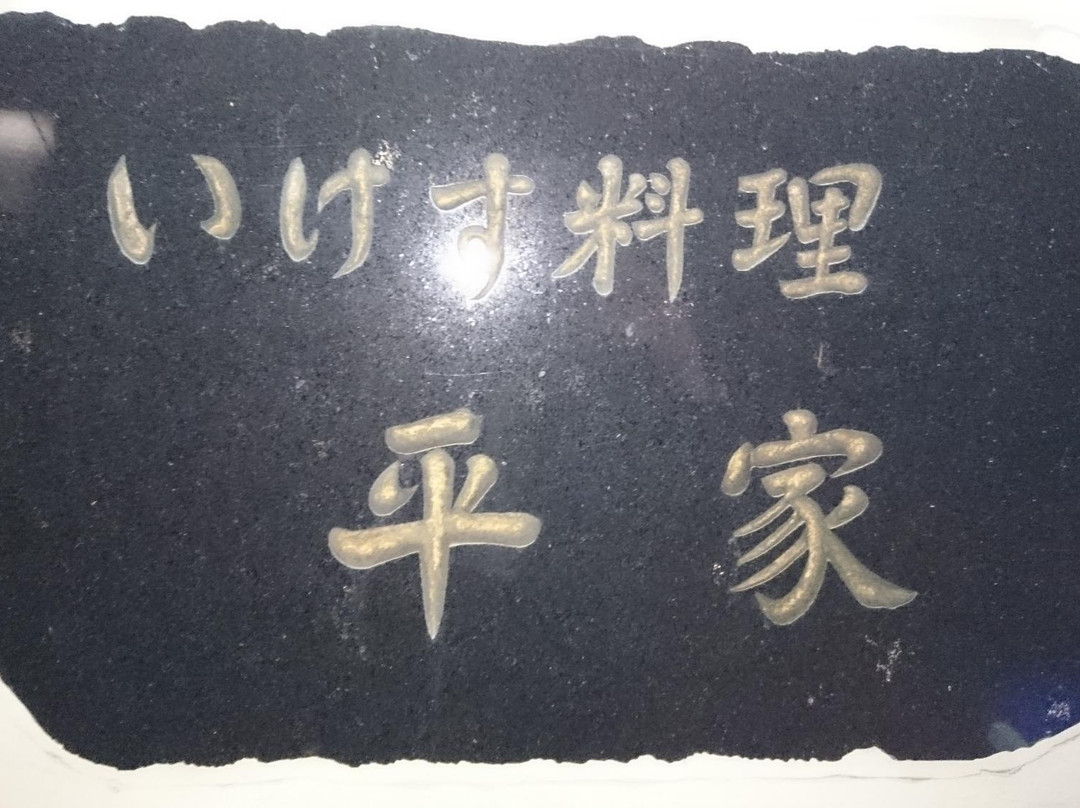 いけす料理
平家